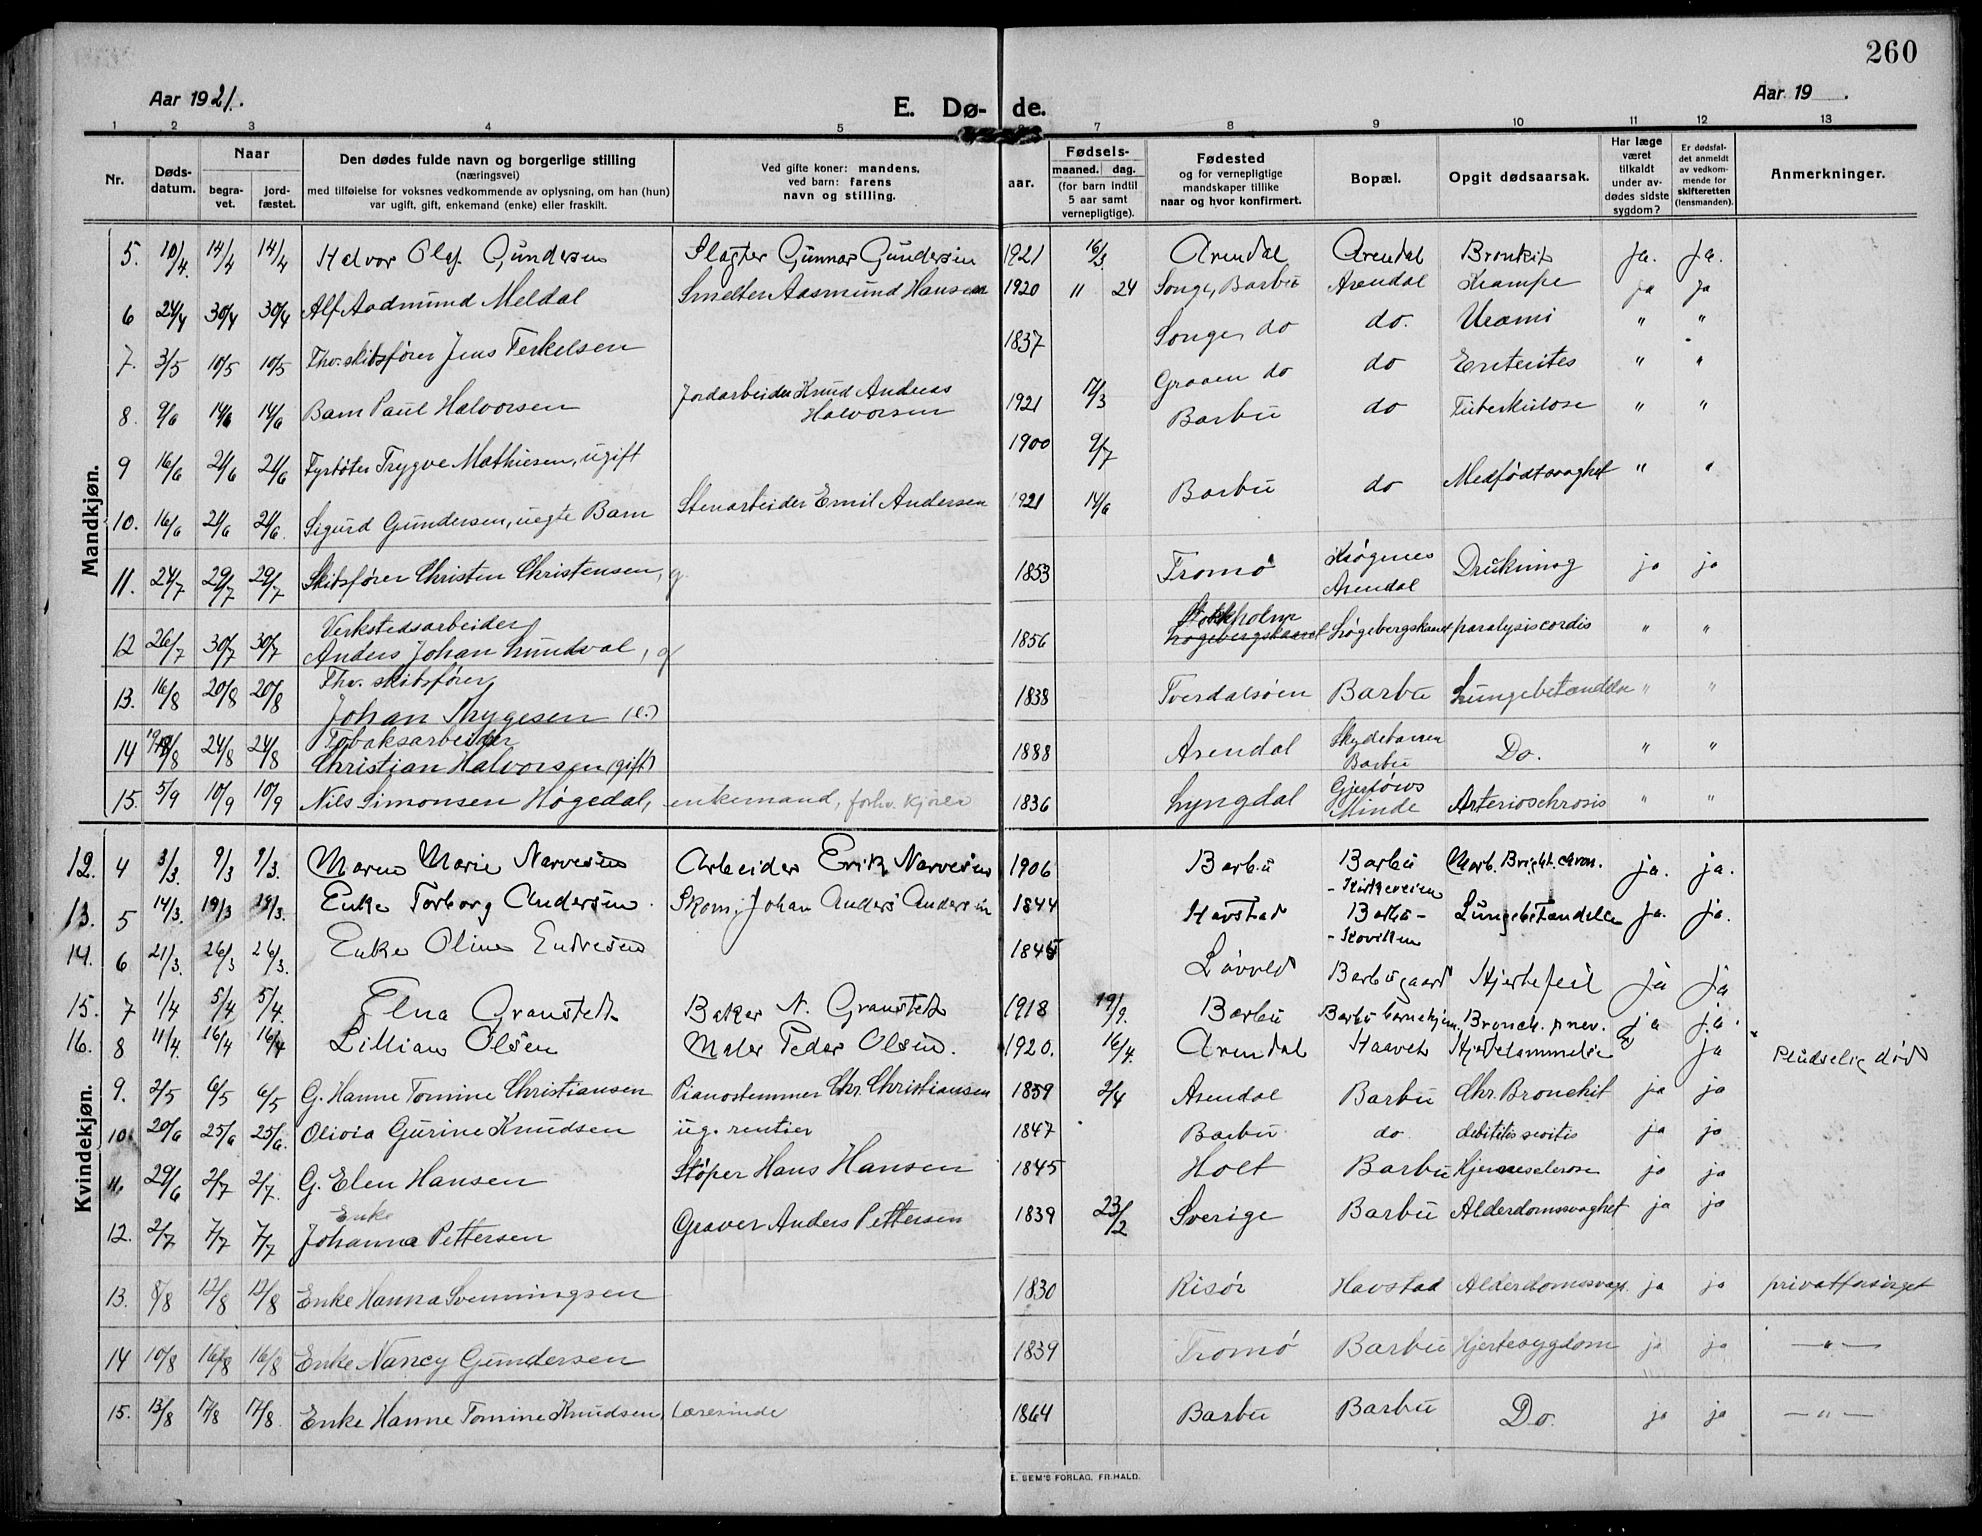 260
Aar 1921.
E. Dø- de.
Aar 19 .
1 2 3 4 5 6 7 8 9 10 11 12 13
Nr.
Døds-
datum.
Naar
begra-
vet.
jord-
fæstet.
Den dødes fulde navn og borgerlige stilling
(næringsvei)
med tilføielse for voksnes vedkommende av oplysning, om han (hun)
var ugift, gift, enkemand (enke) eller fraskilt.
Ved gifte koner: mandens,
ved barn: farens
navn og stilling.
Fødsels-
aar.
maaned. dag.
(for barn indtil
5 aar samt
vernepligtige).
Fødested
og for vernepligtige
mandskaper tillike
naar og hvor konfirmert.
Bopæl.
Opgit dødsaarsak.
Har læge
været
tilkaldt
under av-
dødes sidste
sygdom?
Er dødsfal-
det anmeldt
av vedkom-
mende for
skifteretten
(lensmanden).
Anmerkninger.
Mandkjøn.
5. 10/4. 14/4 14/4 Halvor Olaf Gundersen Slagter Gunnar Gundersen 1921 16/3 Arendal Arendal Bronkit Ja. Ja.
6 24/4 30/4 30/4 Alf Aadmund Meldal Smelter Aasmund Hansen 1920 11 24 Songe, Barbu Arendal Krampe ja ja
7. 3/5 10/5 10/5 Fhv. skibsfører Jens Terkelsen 1837 Songe, do do. Uræmi " "
8. 9/6 14/6 14/6 Barn Paul Halvorsen Jordarbeider Knud Andreas
Halvorsen 1921 17/3 Graaen do
Barbu do Enterites " "
9 16/6 21/6 21/6 Fyrbøter Trygve Mathiesen, ugift 1900 9/7 do Tuberkulose " "
10. 16/6 21/6 21/6. Sigurd Gundersen, uegte Barn Stenarbeider Emil Andersen 1921 14/6 Barbu do Medfødtsvaghet " "
11. 24/7 29/7 29/7 Skibsfører Christen Christensen, g. 1853 Tromø Krøgenes
Arendal Drukning ja ja
12 26/7 30/7 30/7 Verkstedsarbeider
Anders Johan Lundval, g 1856 Stokholm
Løgebergskaaret Løgebergskaaret paralysis cordis " "
13. 16/8 20/8 20/8 Fhv. skibsfører
Johan Thygesen (e.) 1838 Tverdalsøen Barbu Lungebetændelse " "
14 19/8 24/8 24/8 Tobaksarbeider
Christian Halvorsen (gift) 1888 Arendal Skydebanen
Barbu Do. " "
15. 5/9 10/9 10/9 Nils Simonsen Høgedal, enkemand, forhv. kjører 1836 Lyngdal Gjerløws
Minde Arteriosclerosis " "
Kvindekjøn.
12. 4 3/3. 9/3 9/3. Maren Marie Narvesen Arbeider Erik Narvesen 1906 Barbu Barbu
- Kirkeveien Morb. Bright. chron. ja. ja.
13. 5 14/3. 19/3 19/3. Enke Torborg Andersen. Skom. Johan Anders Andersen 1844 Havstad Barbu -
- Kovikken Lungebetændelse ja. ja.
14. 6 21/3. 26/3 26/3. Enke Oline Endresen 1845 Løvold Barbugaard Hjertefeil ja ja
15. 7 1/4 5/4 5/4. Elna Granstedt Baker N. Granstedt 1918 19/9. Barbu Barbu barnehjem. Bronch. pnev. ja ja.
16. 8 11/4. 16/4 16/4 Lillian Olsen Maler Peder Olsen. 1920. 16/4. Arendal Haavet Hjertelammelse ja Pludselig død
9. 2/5 6/5 6/5 G. Hanne Tomine Christiansen Pianostemmer Chr. Christiansen 1859 2/4 Arendal Barbu Chr. Bronchit ja ja
10. 20/6 25/6 25/6. Olivia Gurine Knudsen ug. rentier 1847 Barbu do. ja ja
11. 29/6 2/7 2/7. G. Elen Hansen Støper Hans Hansen 1845 Holt Barbu Hjernesclerose ja ja
12. 2/7 7/7 7/7 Enke
Johanna Pettersen Graver Anders Pettersen 1839 23/2 Sverige Barbu Alderdomssvaghet ja ja
13. 8/8 12/8 12/8 Enke Hanna Svenningsen 1830 Risør Havstad Alderdomssvagh. ja ja privatforsørget
14 10/8 16/8 16/8 Enke Nancy Gundersen 1839 Tromø Barbu Hjertesygdom ja ja —"—
15. 13/8 17/8 17/8. Enke Hanne Tomine Knudsen, Lærerinde 1864 Barbu Barbu Do. ja ja —"—
E. SEM'S FORLAG, FR.HALD.